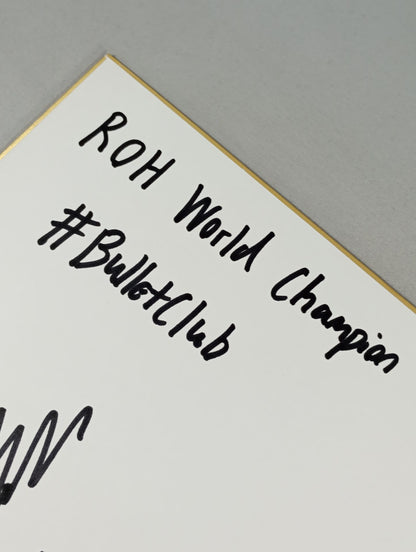 ROH World Champion
#BulletClub